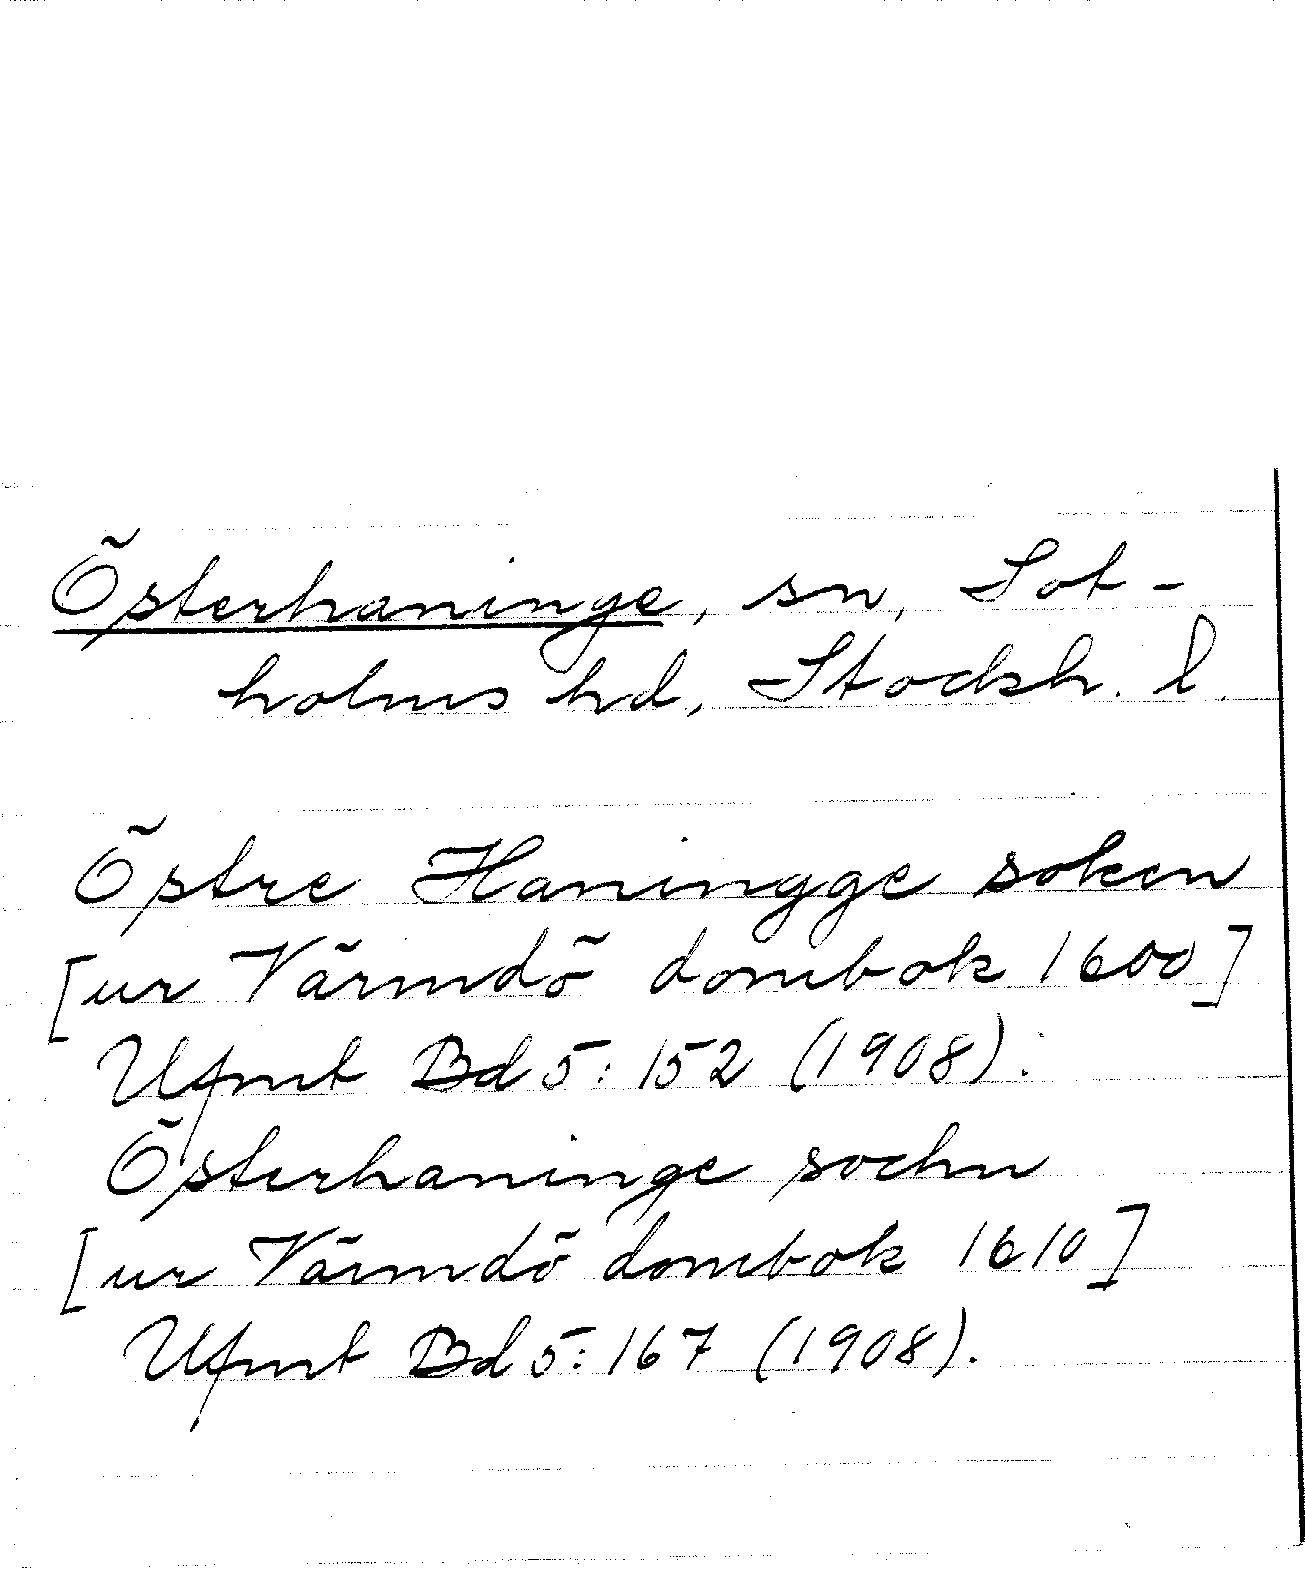 Österhaninge, sn, Sot-
holms hd, Stockh. l.
Östre Haningge soken
[ur Värmdö dombok 1600]
Ufmt Bd 5: 152 (1908).
Österhaninge sochn
[ur Värmdö dombok 1610]
Ufmt Bd 5: 167 (1908).